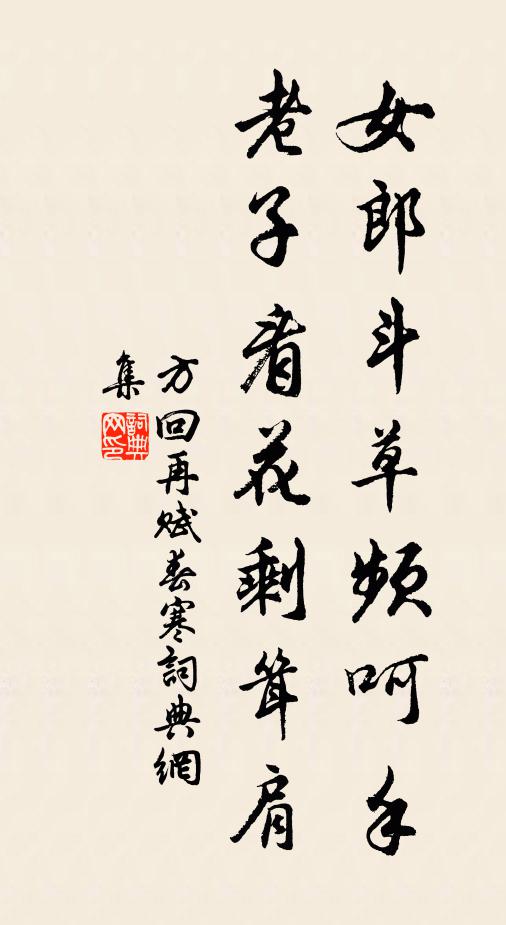 女郎斗草频呵手
老子看花剩耸肩
方回再赋春寒詞典網
集
詞典
网印